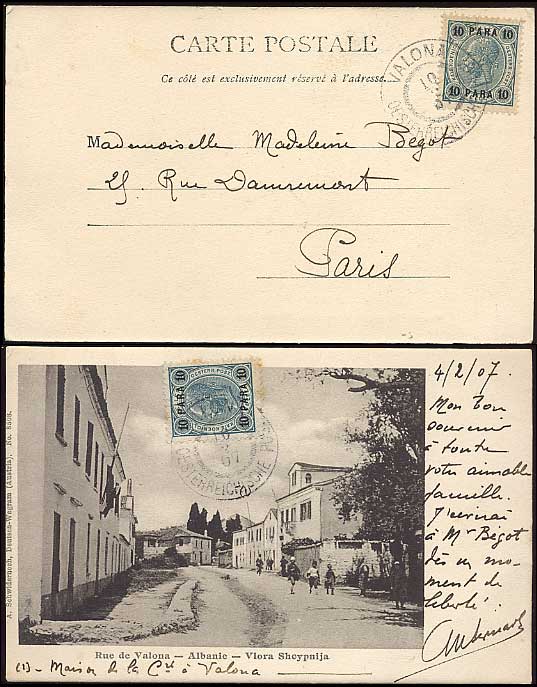 CARTE POSTALE
Ce côté est exclusivement réservé à l'adresse.
10 PARA 10
10 PARA 10
VALONA
OESTERREICHISCHE
Mademoiselle Madeleine Begot
25, Rue Damremont
Paris
10 PARA 10
OESTERR. POST
10 PARA 10
OESTERREICHISCHE
07
4/2/07.
Mon bon
souvenir
à toute
votre aimable
famille.
J'écrirai
à Mr Bégot
dès un mo-
ment de
liberté.
A. Schwidernoch, Deutsch-Wagram (Austria). No. 8808.
Rue de Valona — Albanie — Vlora Shcypnija
(1) - Maison de la Cie à Valona